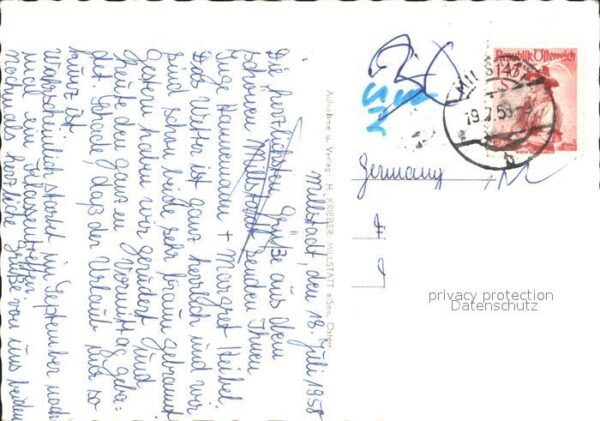 Millstadt, den 18. Juli 1958
Die herzlichsten Grüße aus dem
schönen Millstadt senden Ihnen
Inge Hannemann + Margret Heibel.
Das Wetter ist ganz herrlich und wir
sind schon beide sehr braun gebrannt
Gestern haben wir gerudert und
heute den ganzen Vormittag geba-
det. Schade, daß der Urlaub nur so
kurz ist.
Wahrscheinlich startet im September noch
mal ein Klassentreffen.
Nochmals herzliche Grüße von uns beiden
Aufnahme u. Verlag: H. KRIEBER, MILLSTATT a/See, Österr.
Republik Österreich
145
19.7.58
b
Germany
privacy protection
Datenschutz